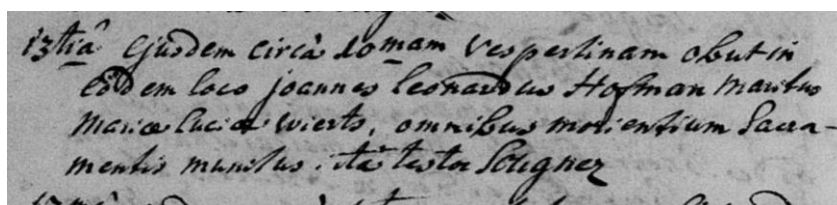 13tiâ Ejusdem circâ 10mam Vespertinam obiit in
eôdem loco joannes leonardus Hofman Maritus
Mariæ luciæ wierts, omnibus morientium Sacra-
mentis munitus. ità testor Sougnez